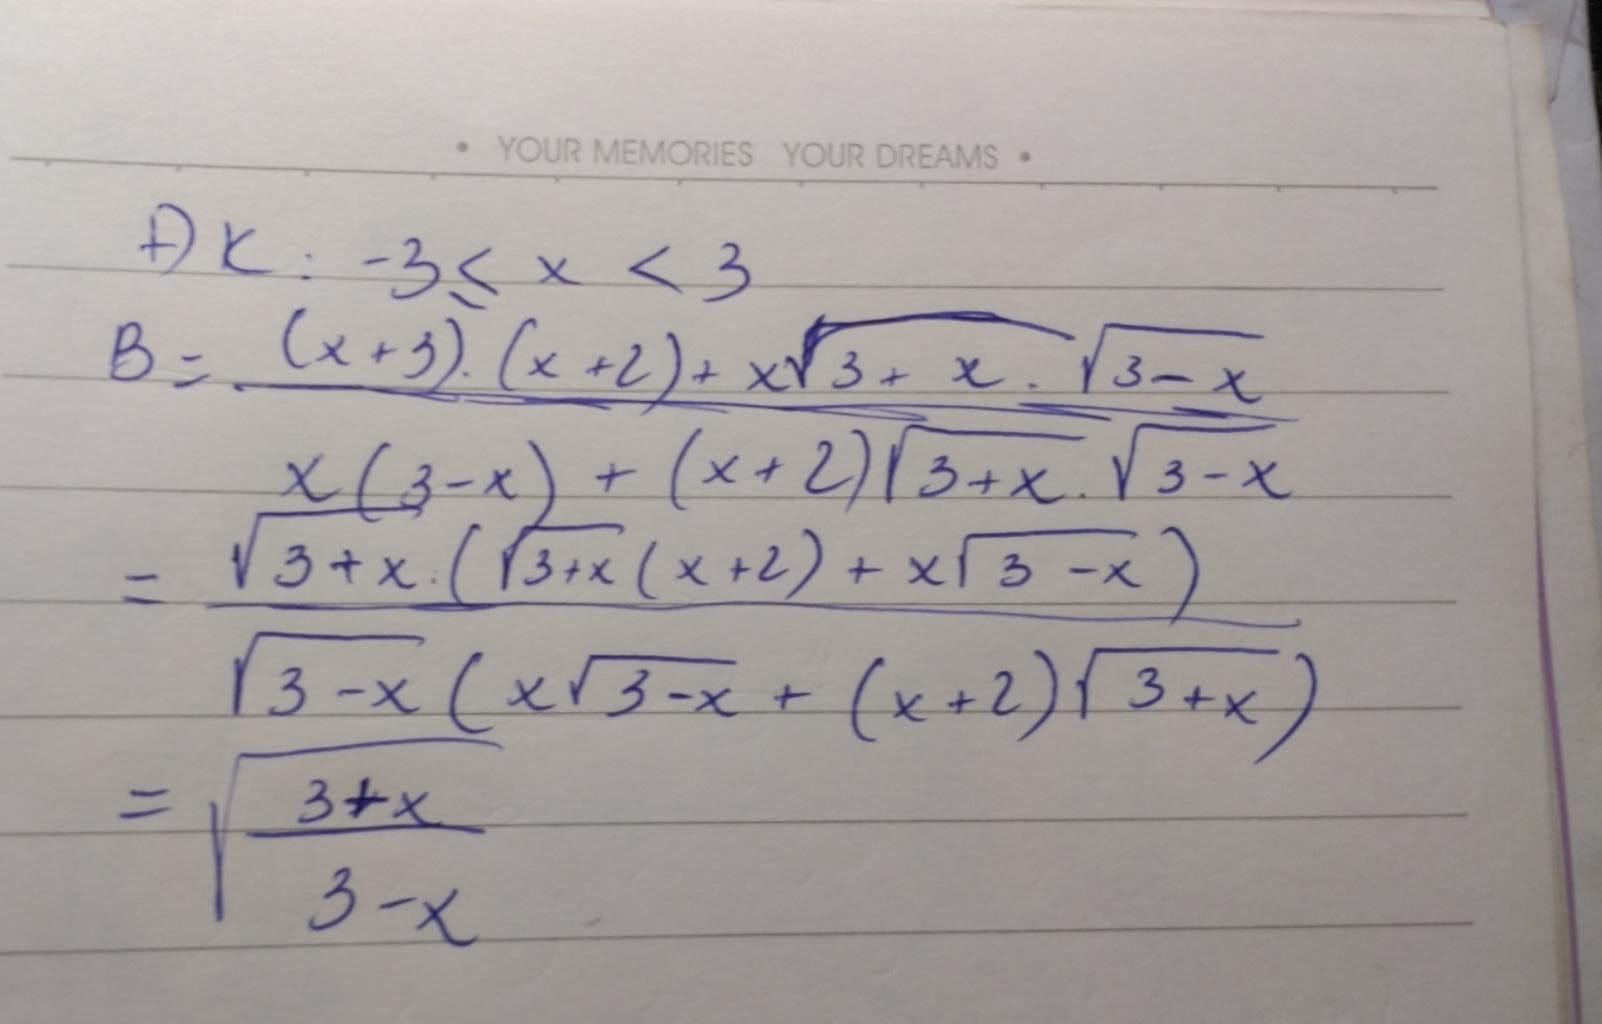 • YOUR MEMORIES YOUR DREAMS •
ĐK: -3 ≤ x < 3
B = ((x+3).(x+2) + x√(3+x) . √(3-x)) / (x(3-x) + (x+2)√(3+x) . √(3-x))
= (√(3+x) . (√(3+x)(x+2) + x√(3-x))) / (√(3-x) (x√(3-x) + (x+2)√(3+x)))
= √((3+x)/(3-x))